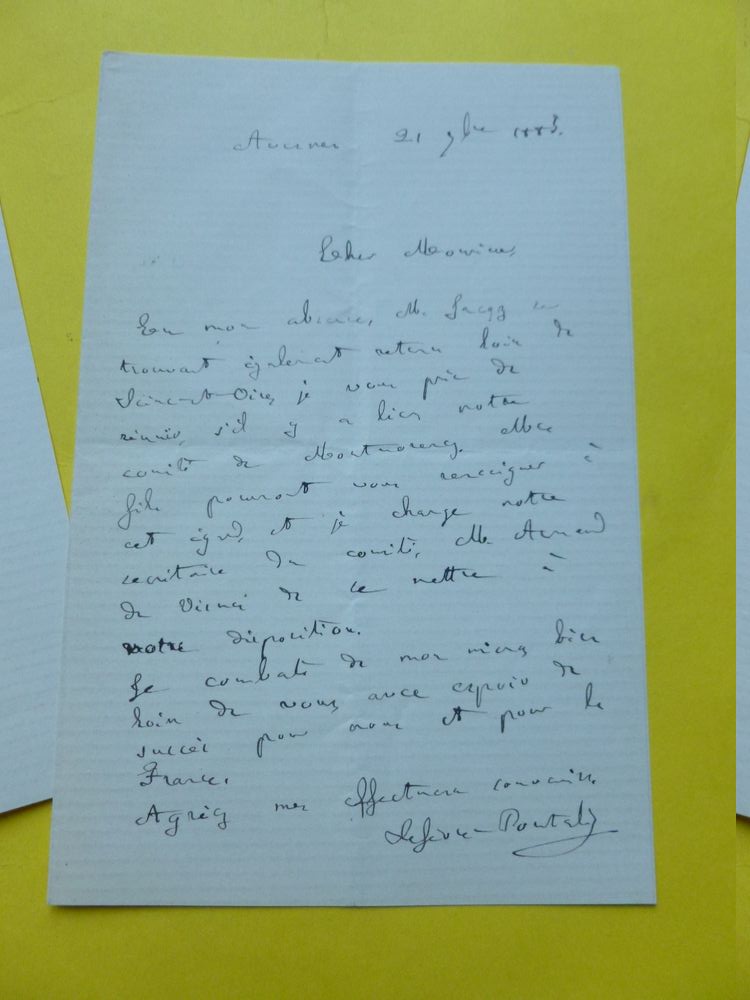 21 9bre 1883.
Cher Monsieur,
En mon absence, M.
trouvant également retenu loin de
Seine-et-Oise, je vous prie de
réunir, s'il y a lieu notre
comité de Montmorency. Mes
fils pourront vous renseigner à
cet égard, et je charge notre
secrétaire du comité, M. Armand
de de se mettre à
votre disposition.
Je combats de mon mieux bien
loin de vous avec espoir de
succès pour nous et pour la
France.
Agréez mes affectueux souvenirs.
Lefèvre-Pontalis